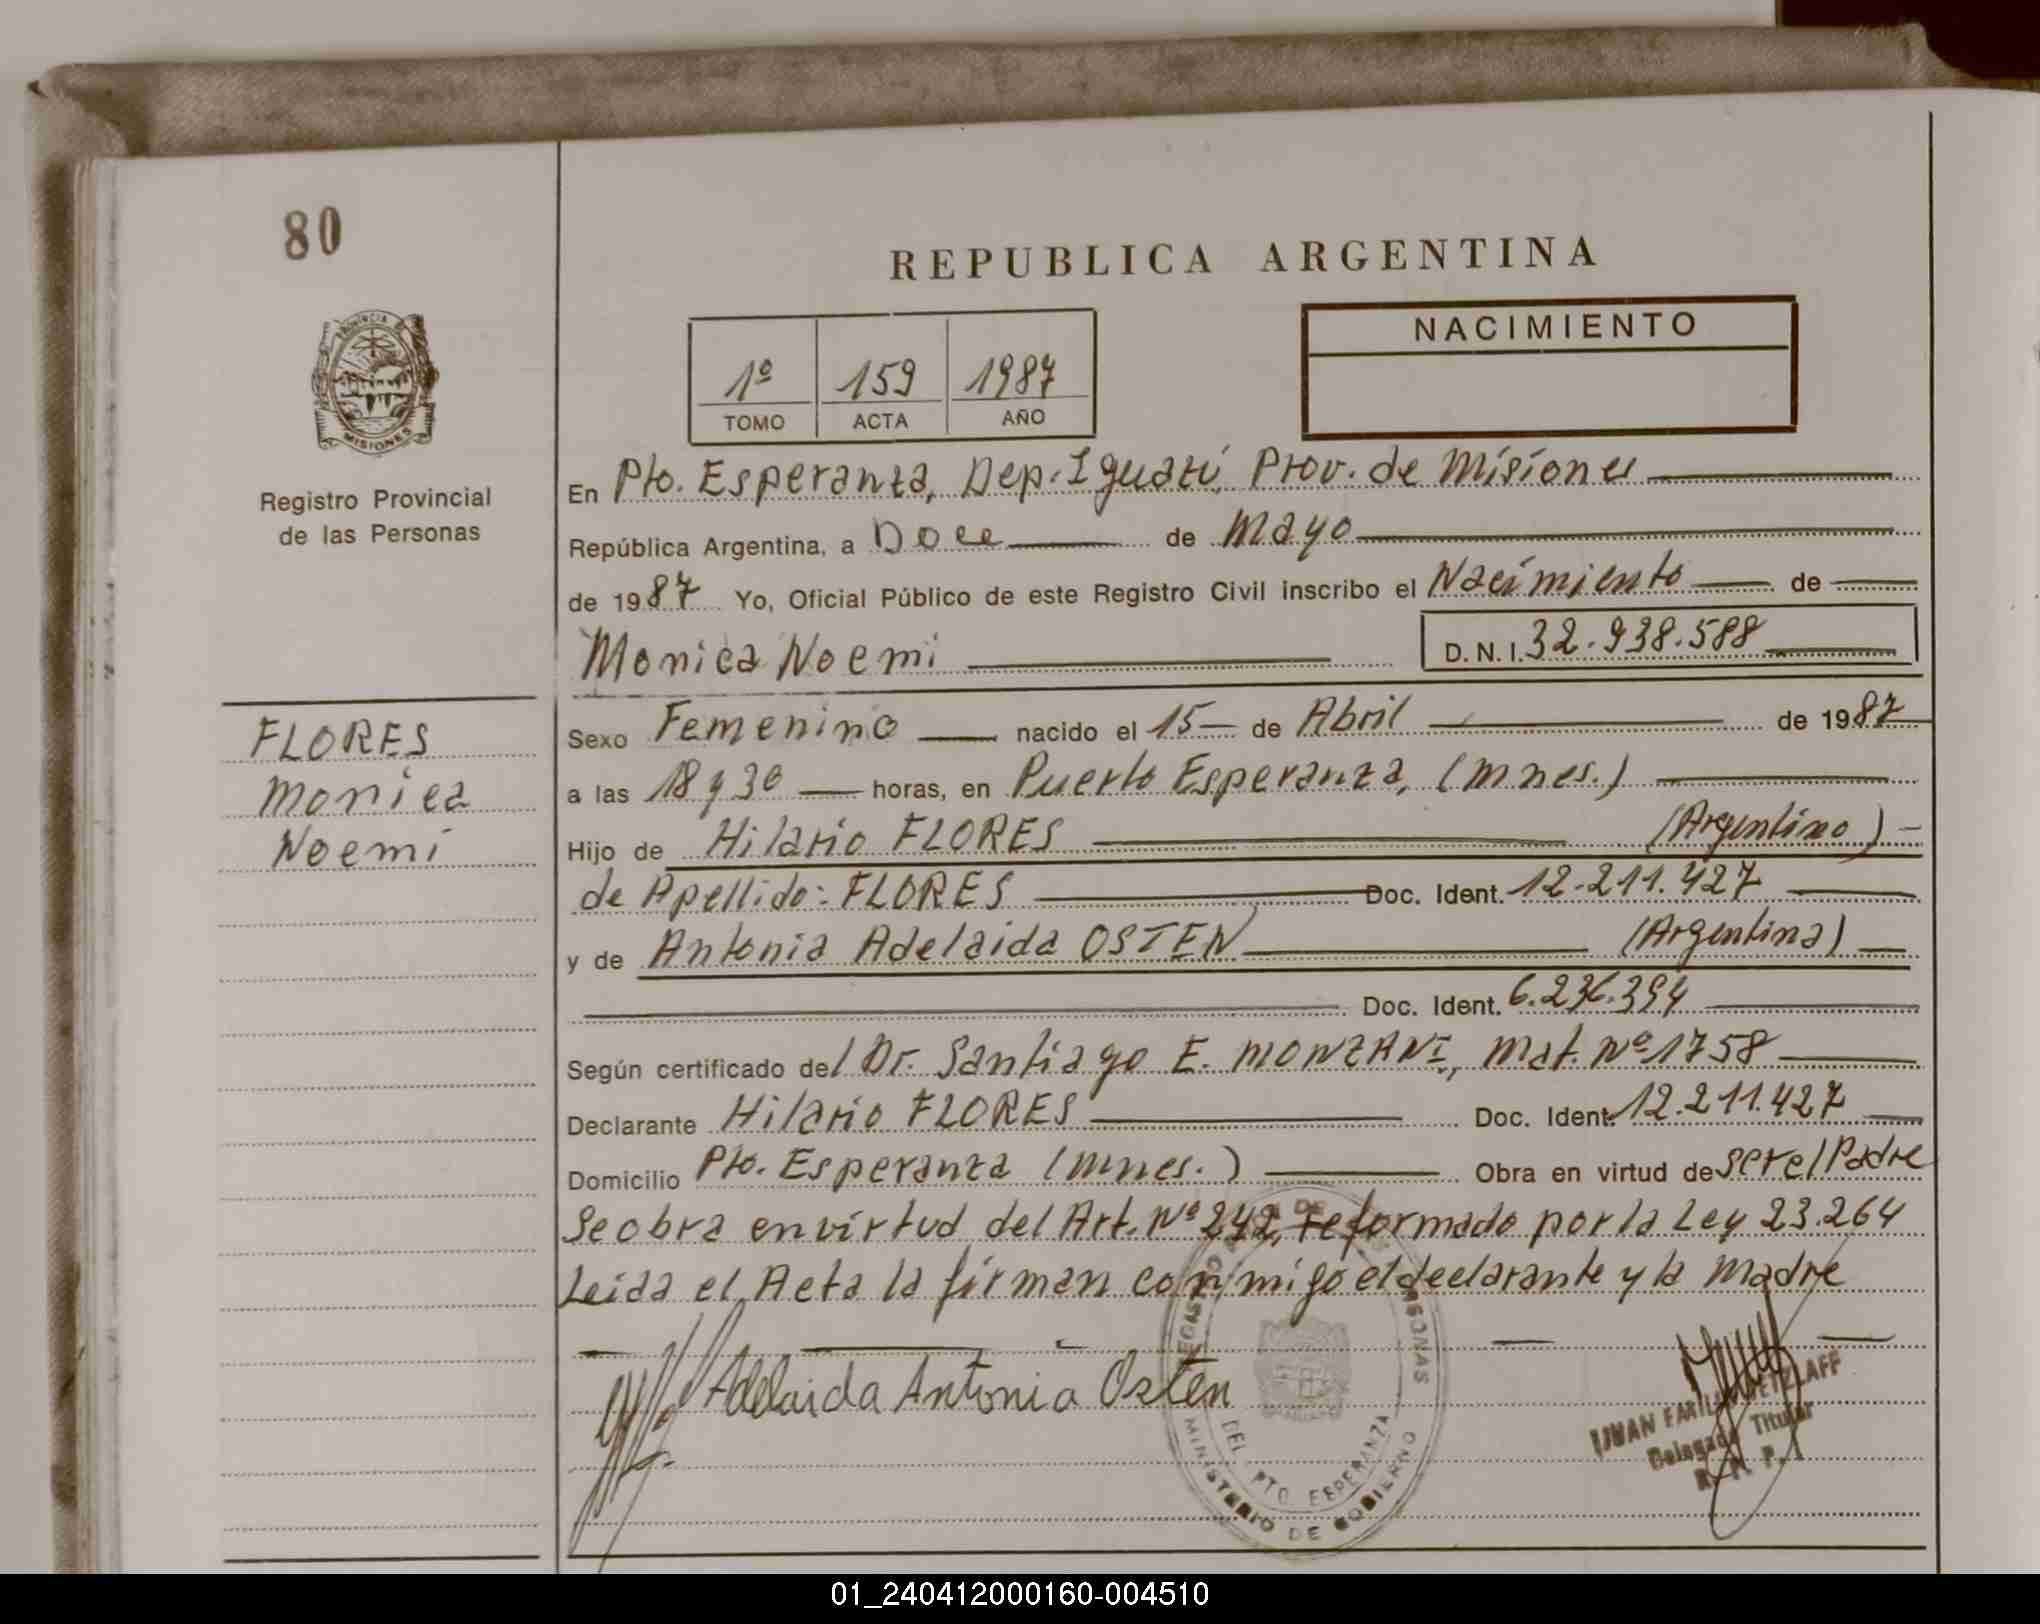 80
REPUBLICA ARGENTINA
PROVINCIA DE
MISIONES
Registro Provincial
de las Personas
1º 159 1987
TOMO ACTA AÑO
NACIMIENTO
En Pto. Esperanza, Dep. Iguazú, Prov. de Misiones
República Argentina, a Doce de Mayo
de 1987 Yo, Oficial Público de este Registro Civil inscribo el Nacimiento de
Monica Noemi D.N.I. 32.938.588
FLORES
Monica
Noemi
Sexo Femenino nacido el 15 de Abril de 1987
a las 18 y 30 horas, en Puerto Esperanza, (Mnes.)
Hijo de Hilario FLORES (Argentino)
de Apellido: FLORES Doc. Ident. 12.211.427
y de Antonia Adelaida OSTEN (Argentina)
Doc. Ident. 6.236.394
Según certificado del Dr. Santiago E. MONZANI, Mat. Nº 1758
Declarante Hilario FLORES Doc. Ident. 12.211.427
Domicilio Pto. Esperanza (Mnes.) Obra en virtud de ser el Padre
Se obra en virtud del Art. Nº 242, reformado por la Ley 23.264
Leida el Acta la firman conmigo el declarante y la Madre
Adelaida Antonia Osten
DEL PTO ESPERANZA
MINISTERIO DE GOBIERNO
Delegado Titular
R. P. P.
01_240412000160-004510